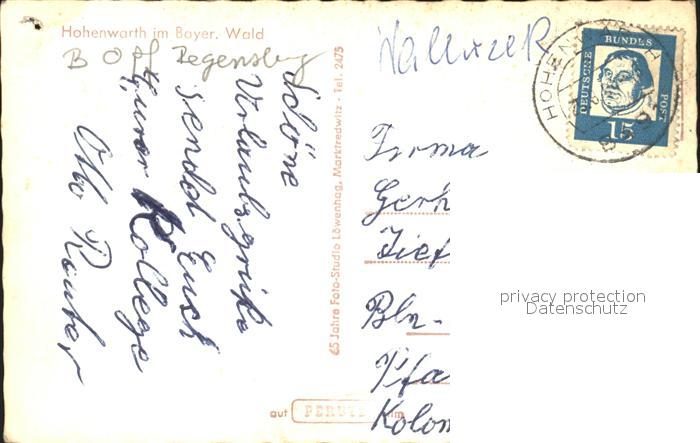 Hohenwarth im Bayer. Wald
B Opf Regensburg
Schöne
Urlaubsgrüße
sendet Euch
Eurer Kollege
Otto
65 Jahre Foto-Studio Löwenhag, Marktredwitz · Tel. 2475
auf PERUTZ Film
DEUTSCHE BUNDES POST
15
HOHENWARTH
Firma
Gerh
Tief
Bln-
Pfa
Kolon
privacy protection
Datenschutz